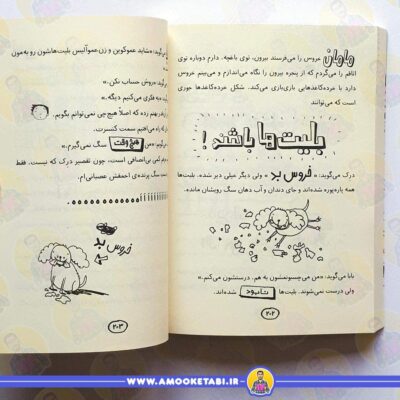 مامان خروس را می‌فرستد بیرون، توی باغچه. دارم دوباره توی
اتاقم را می‌گردم که از پنجره بیرون را نگاه می‌اندازم و می‌بینم خروس
دارد با خرده‌کاغذهایی بازی‌بازی می‌کند. شکل خرده‌کاغذها جوری
است که می‌توانند
بلیت‌ها باشند!
درک می‌گوید: «خروس بد» ولی دیگر خیلی دیر شده. بلیت‌ها
همه پاره‌پوره شده‌اند و جای دندان و آب دهان سگ رویشان مانده.
بابا می‌گوید: «من می‌چسبونمشون به هم، درستشون می‌کنم.»
ولی درست نمی‌شوند. بلیت‌ها نابود شده‌اند.
۲۰۲
می‌گوید: «شاید عموکوین و زن‌عموآلیس بلیت‌هاشون رو به‌مون
می‌گوید: «روش حساب نکن.»
«یه فکری می‌کنیم دیگه.»
که اصلاً هیچ‌چی نمی‌توانم بگویم.
راه می‌افتیم سمت کنسرت.
«من هیچ‌وقت سگ نمی‌گیرم.»
بی‌انصافی است، چون تقصیر درک که نیست. فقط
سگ پرنده‌ی احمقش عصبانی‌ام.
خروس بد
۲۰۳
WWW.AMOOKETABI.IR